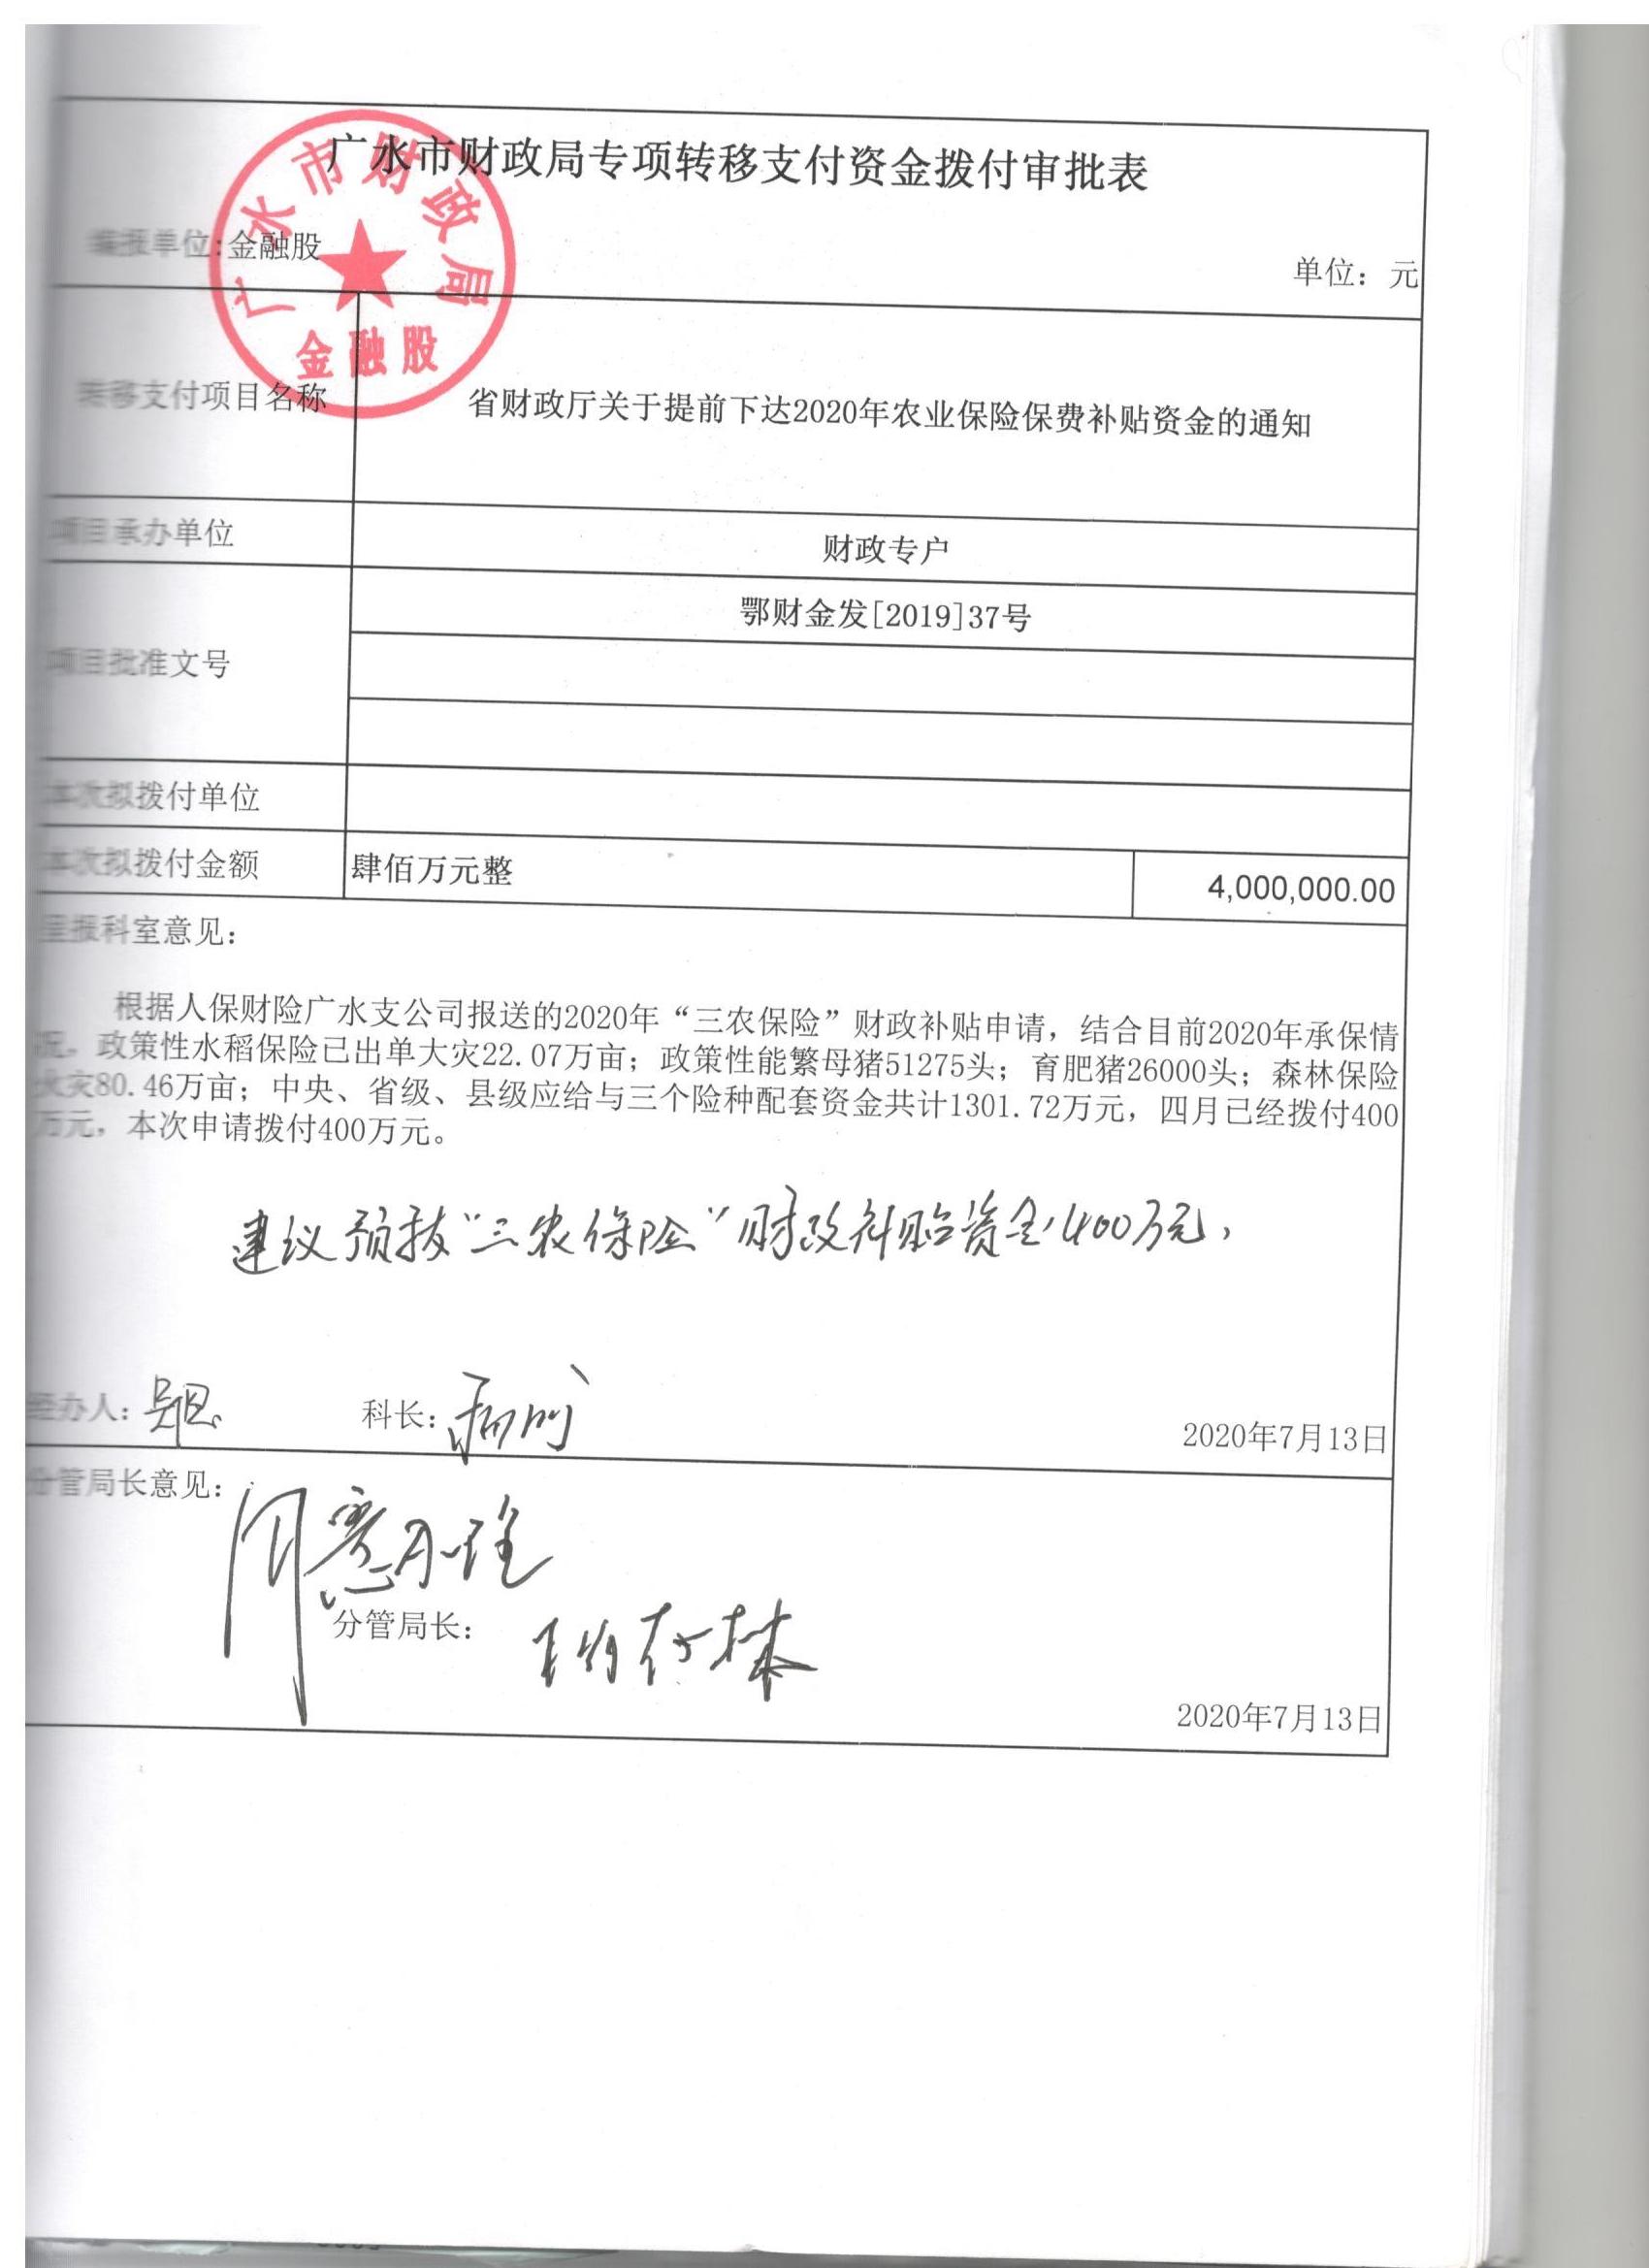 广水市财政局专项转移支付资金拨付审批表
广水市财政局
金融股
编报单位:金融股
单位：元
转移支付项目名称
省财政厅关于提前下达2020年农业保险保费补贴资金的通知
项目承办单位
财政专户
项目批准文号
鄂财金发[2019]37号
本次拟拨付单位
本次拟拨付金额
肆佰万元整
4,000,000.00
呈报科室意见：
根据人保财险广水支公司报送的2020年“三农保险”财政补贴申请，结合目前2020年承保情
况，政策性水稻保险已出单大灾22.07万亩；政策性能繁母猪51275头；育肥猪26000头；森林保险
火灾80.46万亩；中央、省级、县级应给与三个险种配套资金共计1301.72万元，四月已经拨付400
万元，本次申请拨付400万元。
建议预拨“三农保险”财政补贴资金400万元，
经办人：
科长：
2020年7月13日
分管局长意见：
同意
分管局长：
2020年7月13日